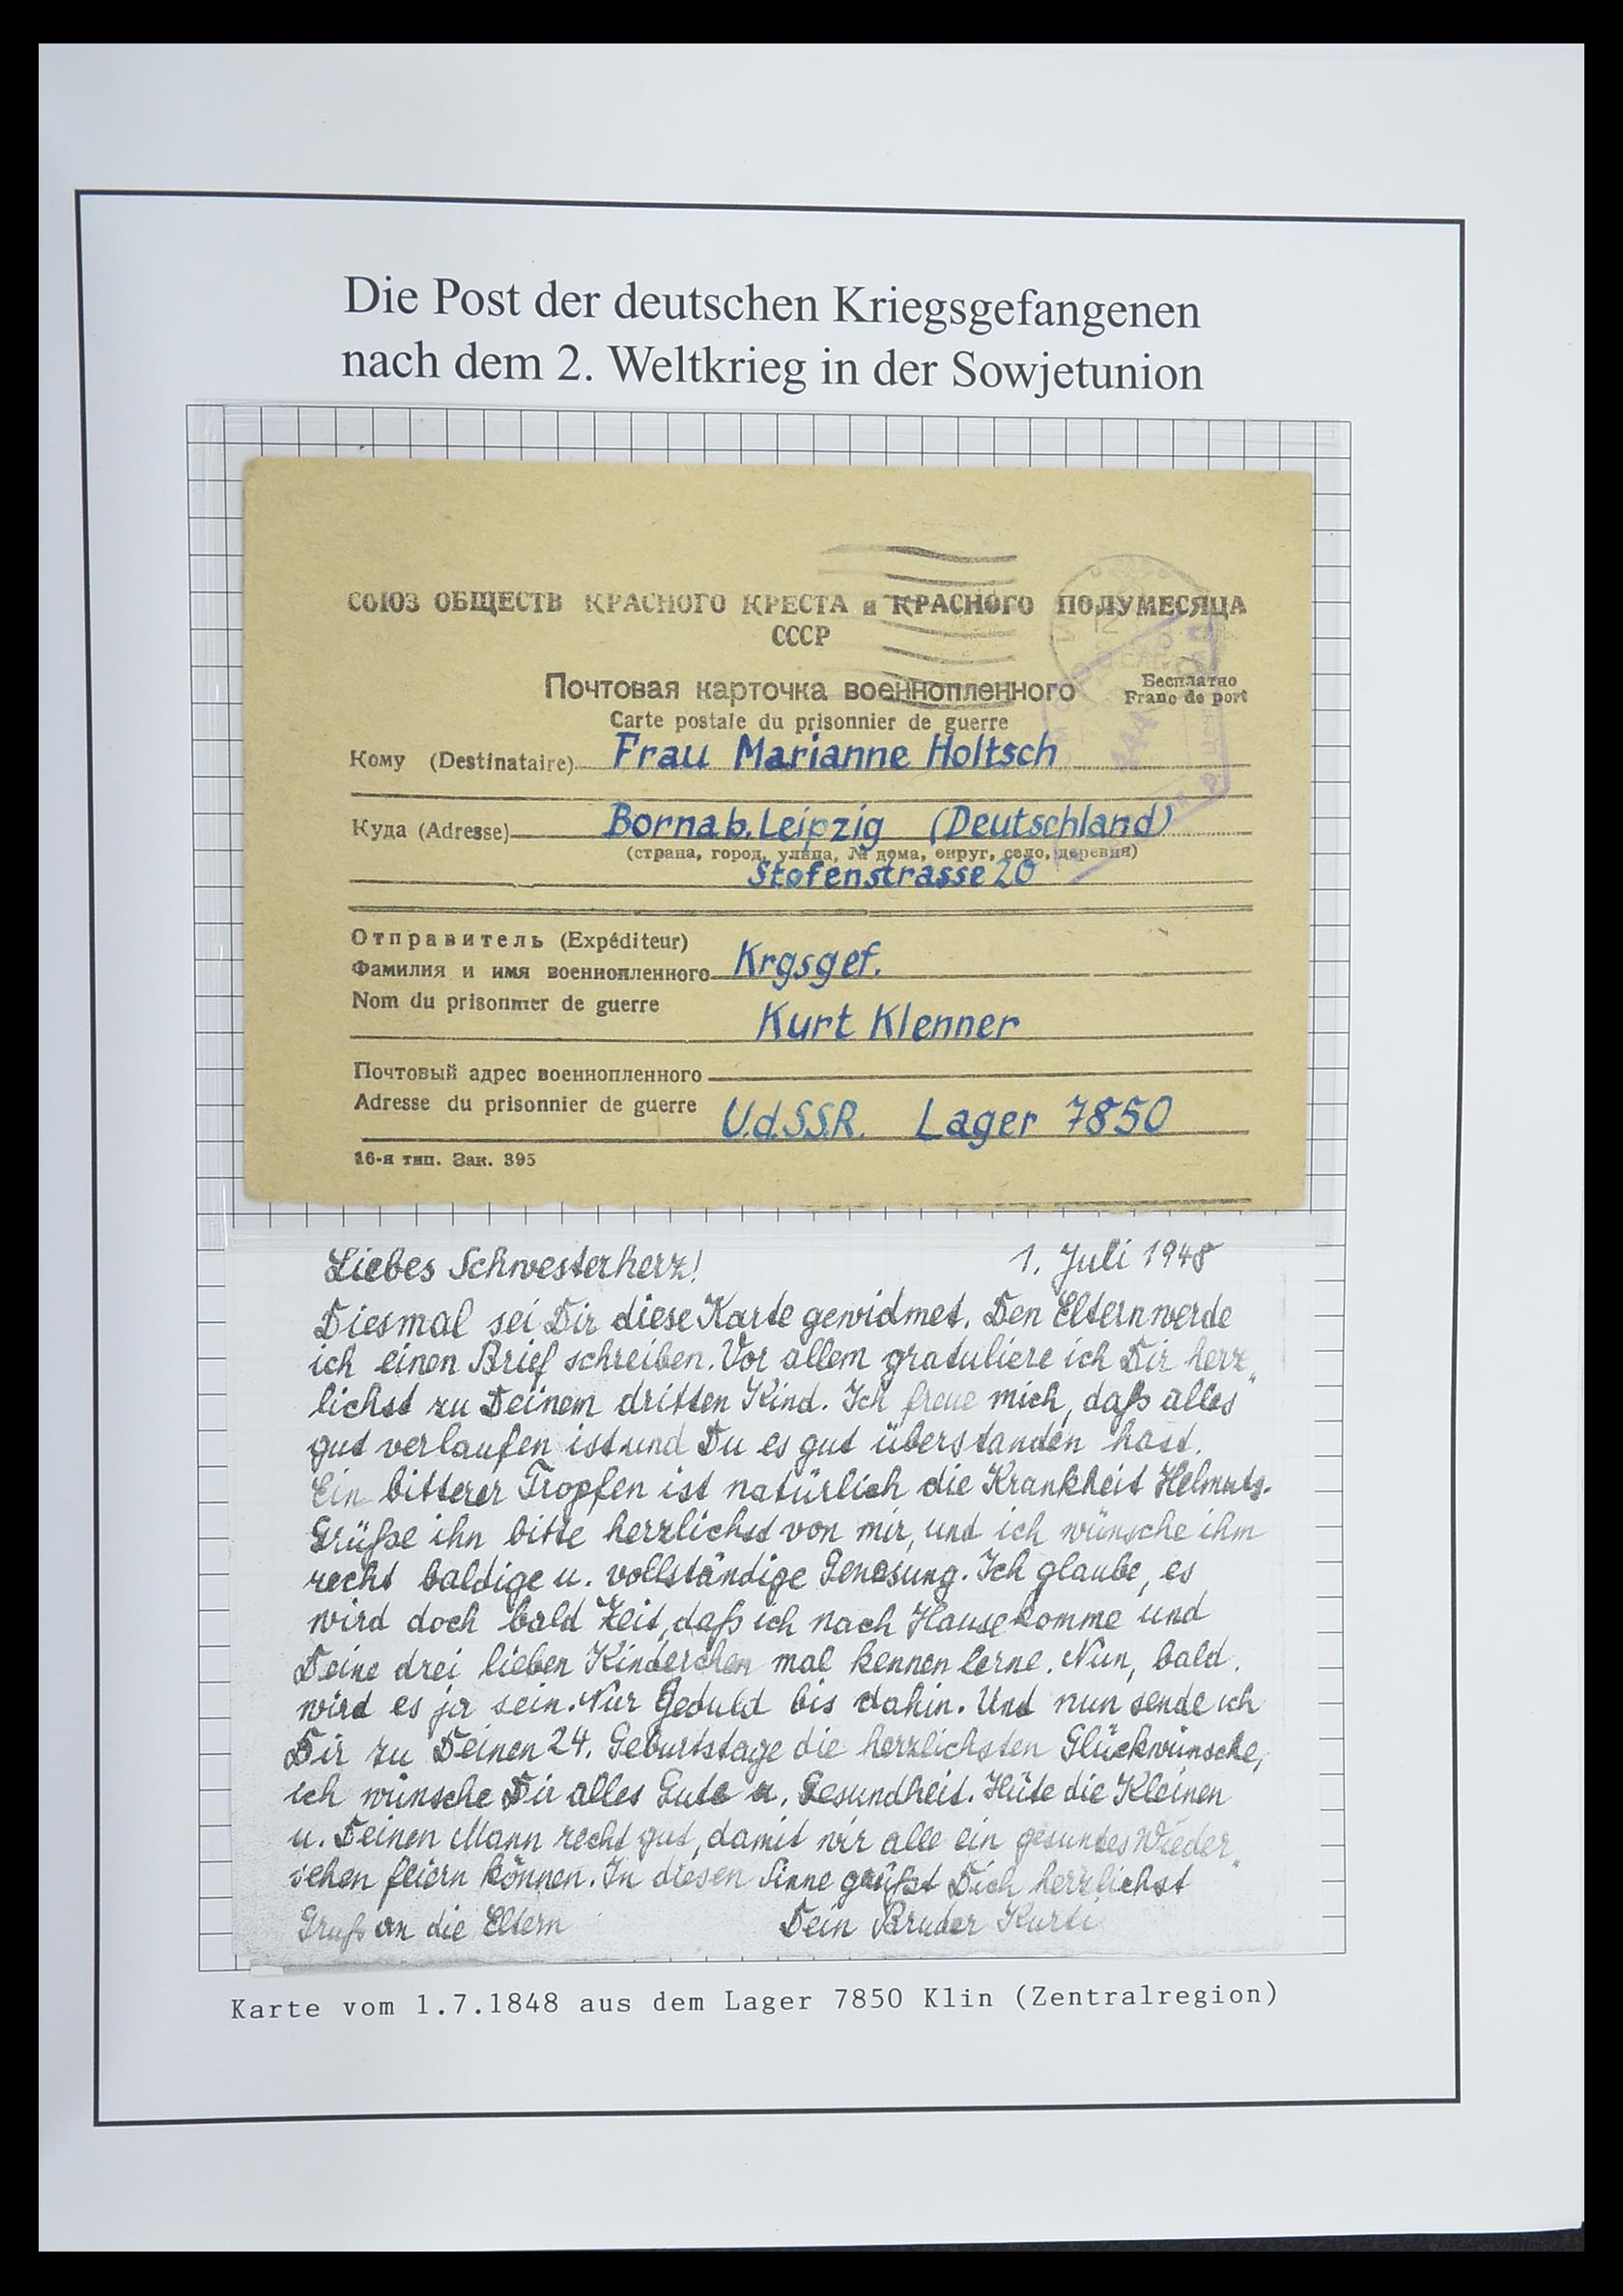 Die Post der deutschen Kriegsgefangenen
nach dem 2. Weltkrieg in der Sowjetunion
СОЮЗ ОБЩЕСТВ КРАСНОГО КРЕСТА и КРАСНОГО ПОЛУМЕСЯЦА
СССР
Почтовая карточка военнопленного
Бесплатно
Franc de port
Carte postale du prisonnier de guerre
Кому (Destinataire) Frau Marianne Holtsch
Куда (Adresse) Borna b. Leipzig (Deutschland)
(страна, город, улица, № дома, округ, село, деревня)
Stofenstrasse 20
Отправитель (Expéditeur)
Фамилия и имя военнопленного Krgsgef.
Nom du prisonnier de guerre
Kurt Klenner
Почтовый адрес военнопленного
Adresse du prisonnier de guerre U.d.S.S.R. Lager 7850
16-я тип. Зак. 395
Liebes Schwesterherz! 1. Juli 1948
Diesmal sei Dir diese Karte gewidmet. Den Eltern werde
ich einen Brief schreiben. Vor allem gratuliere ich Dir herz„
lichst zu Deinem dritten Kind. Ich freue mich, daß alles
gut verlaufen ist und Du es gut überstanden hast.
Ein bitterer Tropfen ist natürlich die Krankheit Helmuts.
Grüße ihn bitte herzlichst von mir, und ich wünsche ihm
recht baldige u. vollständige Genesung. Ich glaube, es
wird doch bald Zeit, daß ich nach Hause komme und
Deine drei lieben Kinderchen mal kennen lerne. Nun, bald
wird es ja sein. Nur Geduld bis dahin. Und nun sende ich
Dir zu Deinen 24. Geburtstage die herzlichsten Glückwünsche,
ich wünsche Dir alles Gute u. Gesundheit. Hüte die Kleinen
u. Deinen Mann recht gut, damit wir alle ein gesundes Wieder„
sehen feiern können. In diesen Sinne grüßt Dich herzlichst
Gruß an die Eltern Dein Bruder Kurti
Karte vom 1.7.1848 aus dem Lager 7850 Klin (Zentralregion)